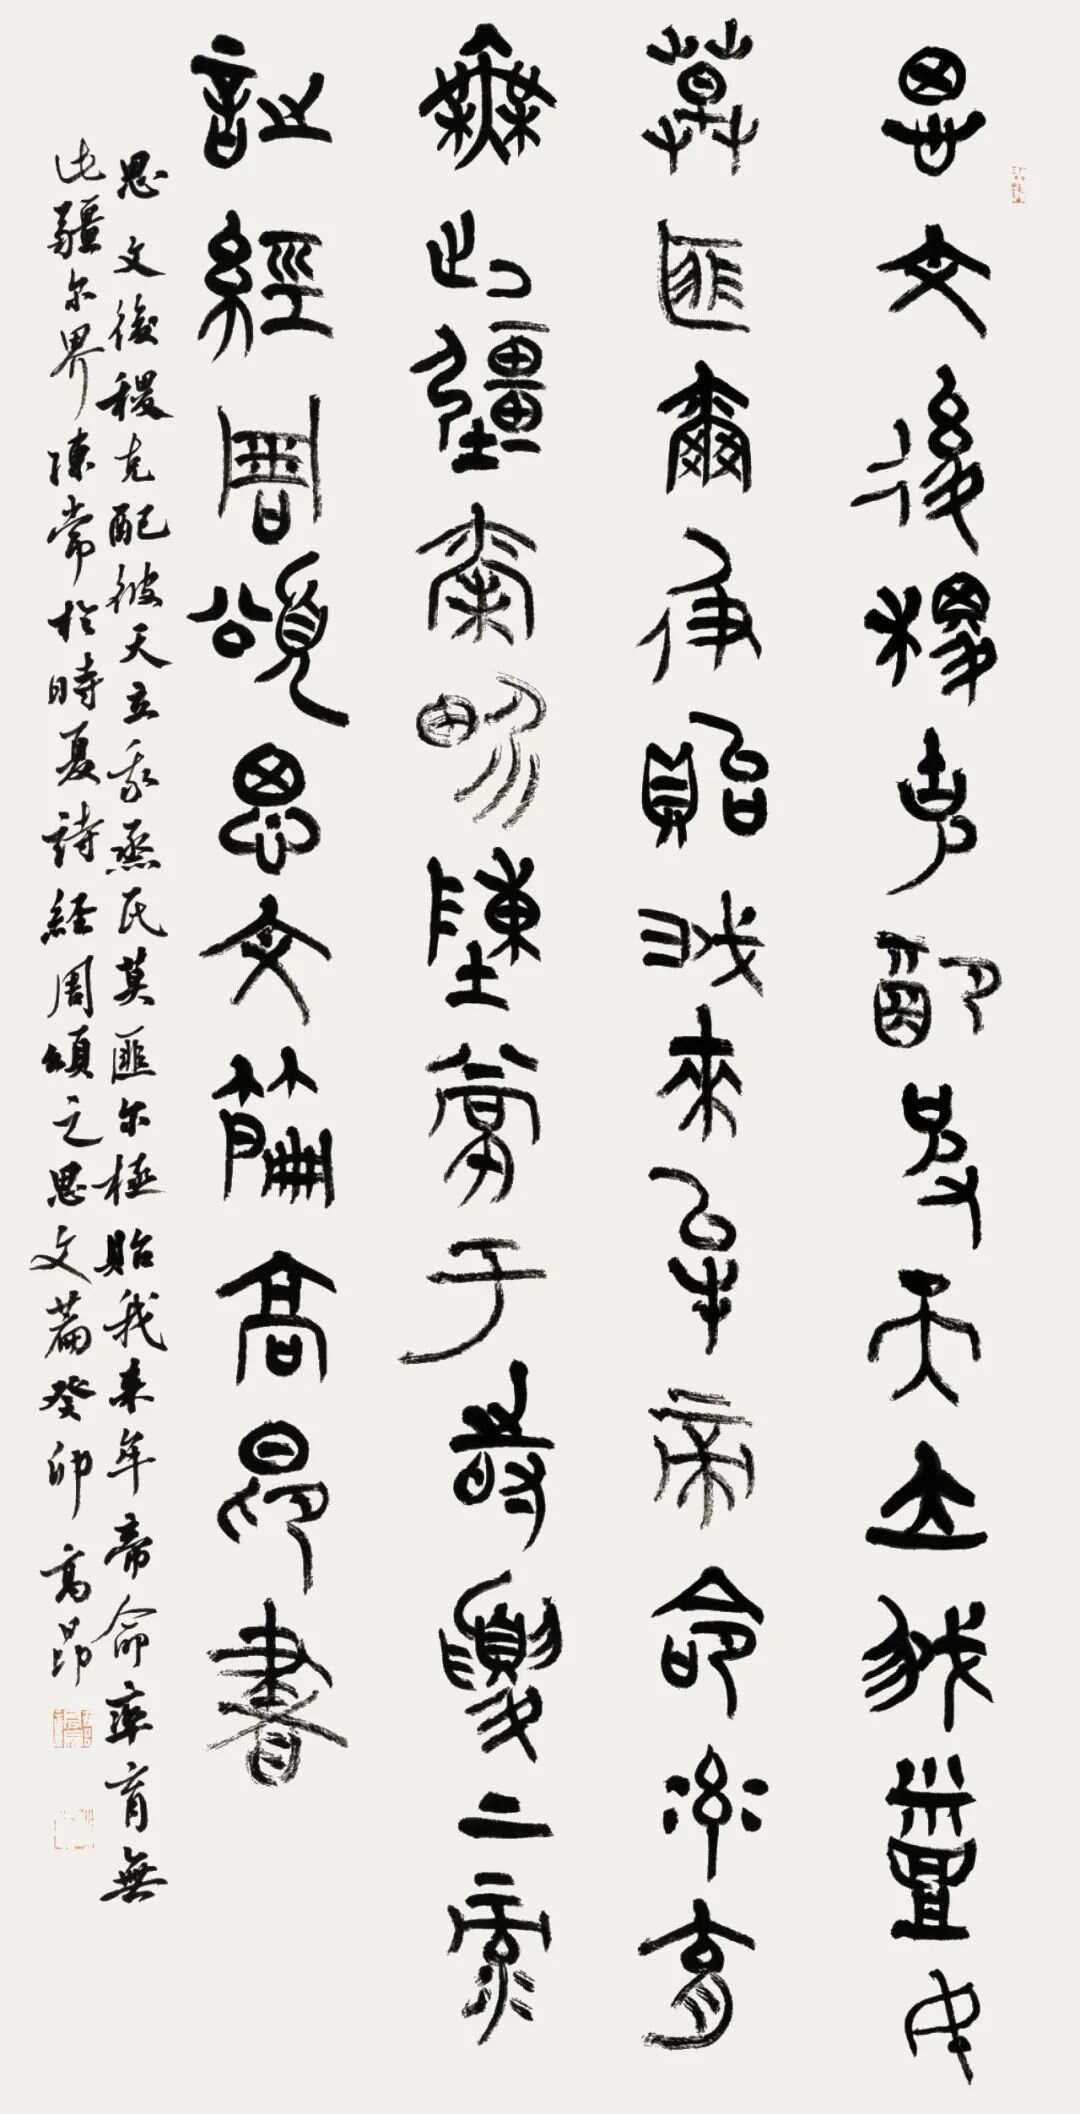 思文後稷克配彼天立我烝民
莫匪爾極貽我來牟帝命率育
無此疆爾界陳常于時夏
詩經周頌思文篇高昂書
思文後稷克配彼天立我烝民莫匪尔極貽我来牟帝命率育無
此疆尔界陳常於時夏詩經周頌之思文篇癸卯高昂